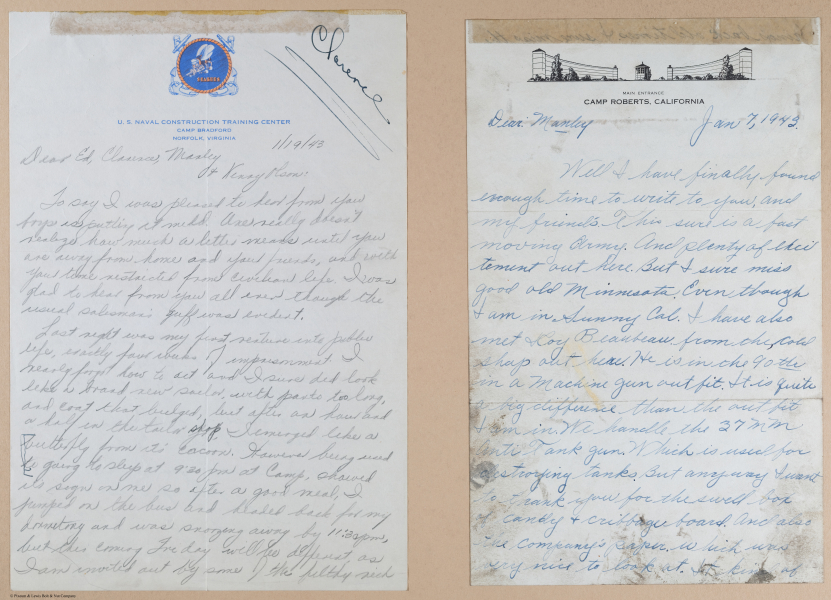 Clarence
U. S. NAVAL CONSTRUCTION TRAINING CENTER
CAMP BRADFORD
NORFOLK, VIRGINIA
1/19/43
Dear Ed, Clarence, Manley
& Kenny Olson:
To say I was pleased to hear from your
boys is putting it mild. One really doesn't
realize how much a letter means until you
are away from home and your friends, and with
your time restricted from civilian life. I was
glad to hear from you all even though the
usual salesman's guff was evident.
Last night was my first venture into public
life, exactly four weeks of imprisonment. I
hardly how to act and I sure did look
like a brand new sailor, with pants too long,
and coat that bulged, but after an hour and
a half in the tailor shop I emerged like a
butterfly from its' cocoon. However being used
to going to sleep at 9:30 pm at Camp, showed
its sign on me so after a good meal, I
jumped on the bus and headed back for my
dormitory and was snoozing away by 11:30 pm,
but this coming Friday will be different as
I am invited out by some of the filthy rich
MAIN ENTRANCE
CAMP ROBERTS, CALIFORNIA
Dear Manley Jan 7, 1943.
Well I have finally found
enough time to write to you, and
my friends. This sure is a fast
moving Army. And plenty of exci
tement out here. But I sure miss
good old Minnesota. Even though
I am in Sunny Cal. I have also
met Roy Beaubeau from the, cold
shop out here. He is in the 90 the
in a Machine gun out fit. It is quite
a big difference than the out fit
I am in. We handle the 37 MM
Anti Tank gun. Which is used for
destroying tanks. But anyway I want
to thank you for the swell box
of candy & cribbage board. And also
the company's paper. which was
very nice to look at. It kind of
© Pittman & Lewis Beck & Son Company